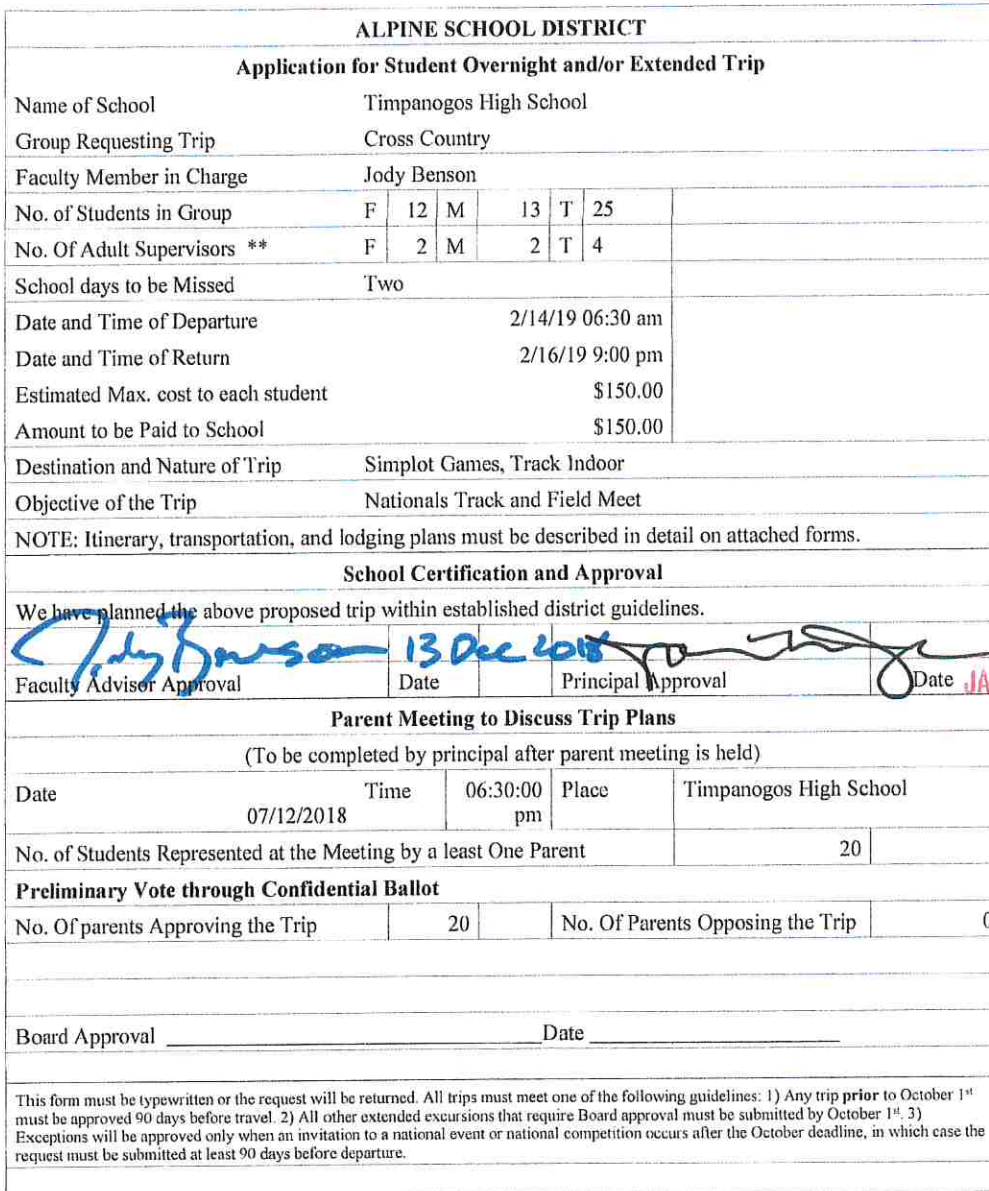 ALPINE SCHOOL DISTRICT
Application for Student Overnight and/or Extended Trip
Name of School Timpanogos High School
Group Requesting Trip Cross Country
Faculty Member in Charge Jody Benson
No. of Students in Group F 12 M 13 T 25
No. Of Adult Supervisors ** F 2 M 2 T 4
School days to be Missed Two
Date and Time of Departure 2/14/19 06:30 am
Date and Time of Return 2/16/19 9:00 pm
Estimated Max. cost to each student $150.00
Amount to be Paid to School $150.00
Destination and Nature of Trip Simplot Games, Track Indoor
Objective of the Trip Nationals Track and Field Meet
NOTE: Itinerary, transportation, and lodging plans must be described in detail on attached forms.
School Certification and Approval
We have planned the above proposed trip within established district guidelines.
Jody Benson 13 Dec 2018
Faculty Advisor Approval Date Principal Approval Date JA
Parent Meeting to Discuss Trip Plans
(To be completed by principal after parent meeting is held)
Date 07/12/2018 Time 06:30:00 pm Place Timpanogos High School
No. of Students Represented at the Meeting by a least One Parent 20
Preliminary Vote through Confidential Ballot
No. Of parents Approving the Trip 20 No. Of Parents Opposing the Trip 0
Board Approval Date
This form must be typewritten or the request will be returned. All trips must meet one of the following guidelines: 1) Any trip prior to October 1st
must be approved 90 days before travel. 2) All other extended excursions that require Board approval must be submitted by October 1st. 3)
Exceptions will be approved only when an invitation to a national event or national competition occurs after the October deadline, in which case the
request must be submitted at least 90 days before departure.